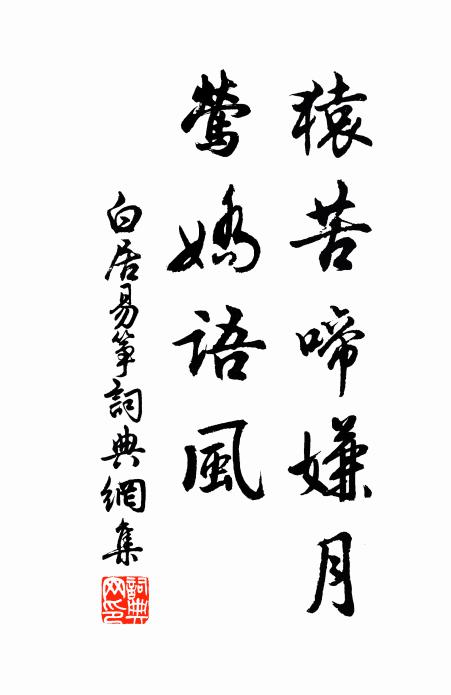 猿苦啼嫌月
鶯嬌語風
白居易箏詞典網集
詞典
网印